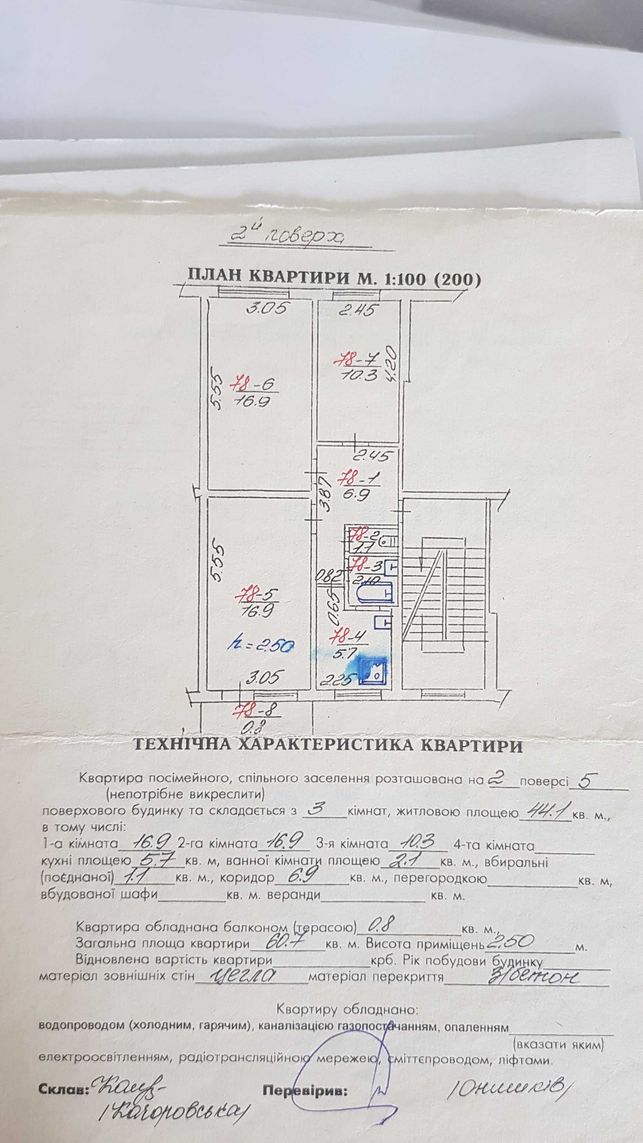 2й поверх
ПЛАН КВАРТИРИ М. 1:100 (200)
3.05 2.45
78-6
16.9
5.55
78-7
10.3
4.20
2.45
78-1
6.9
3.87
78-2
1.1
78-3
0.82
0.65
5.55
78-5
16.9
h = 2.50
78-4
5.7
3.05 2.25
78-8
0.8
ТЕХНІЧНА ХАРАКТЕРИСТИКА КВАРТИРИ
Квартира посімейного, спільного заселення розташована на 2 поверсі 5
(непотрібне викреслити)
поверхового будинку та складається з 3 кімнат, житловою площею 44.1 кв. м.,
в тому числі:
1-а кімната 16.9 2-га кімната 16.9 3-я кімната 10.3 4-та кімната
кухні площею 5.7 кв. м, ванної кімнати площею 2.1 кв. м., вбиральні
(поєднаної) 1.1 кв. м., коридор 6.9 кв. м., перегородкою кв. м,
вбудованої шафи кв. м. веранди кв. м.
Квартира обладнана балконом (терасою) 0.8 кв. м.,
Загальна площа квартири 60.7 кв. м. Висота приміщень 2.50 м.
Відновлена вартість квартири крб. Рік побудови будинку
матеріал зовнішніх стін цегла матеріал перекриття з/бетон
Квартиру обладнано:
водопроводом (холодним, гарячим), каналізацією газопостачанням, опаленням
(вказати яким)
електроосвітленням, радіотрансляційною мережею, сміттєпроводом, ліфтами.
Склав: Перевірив: